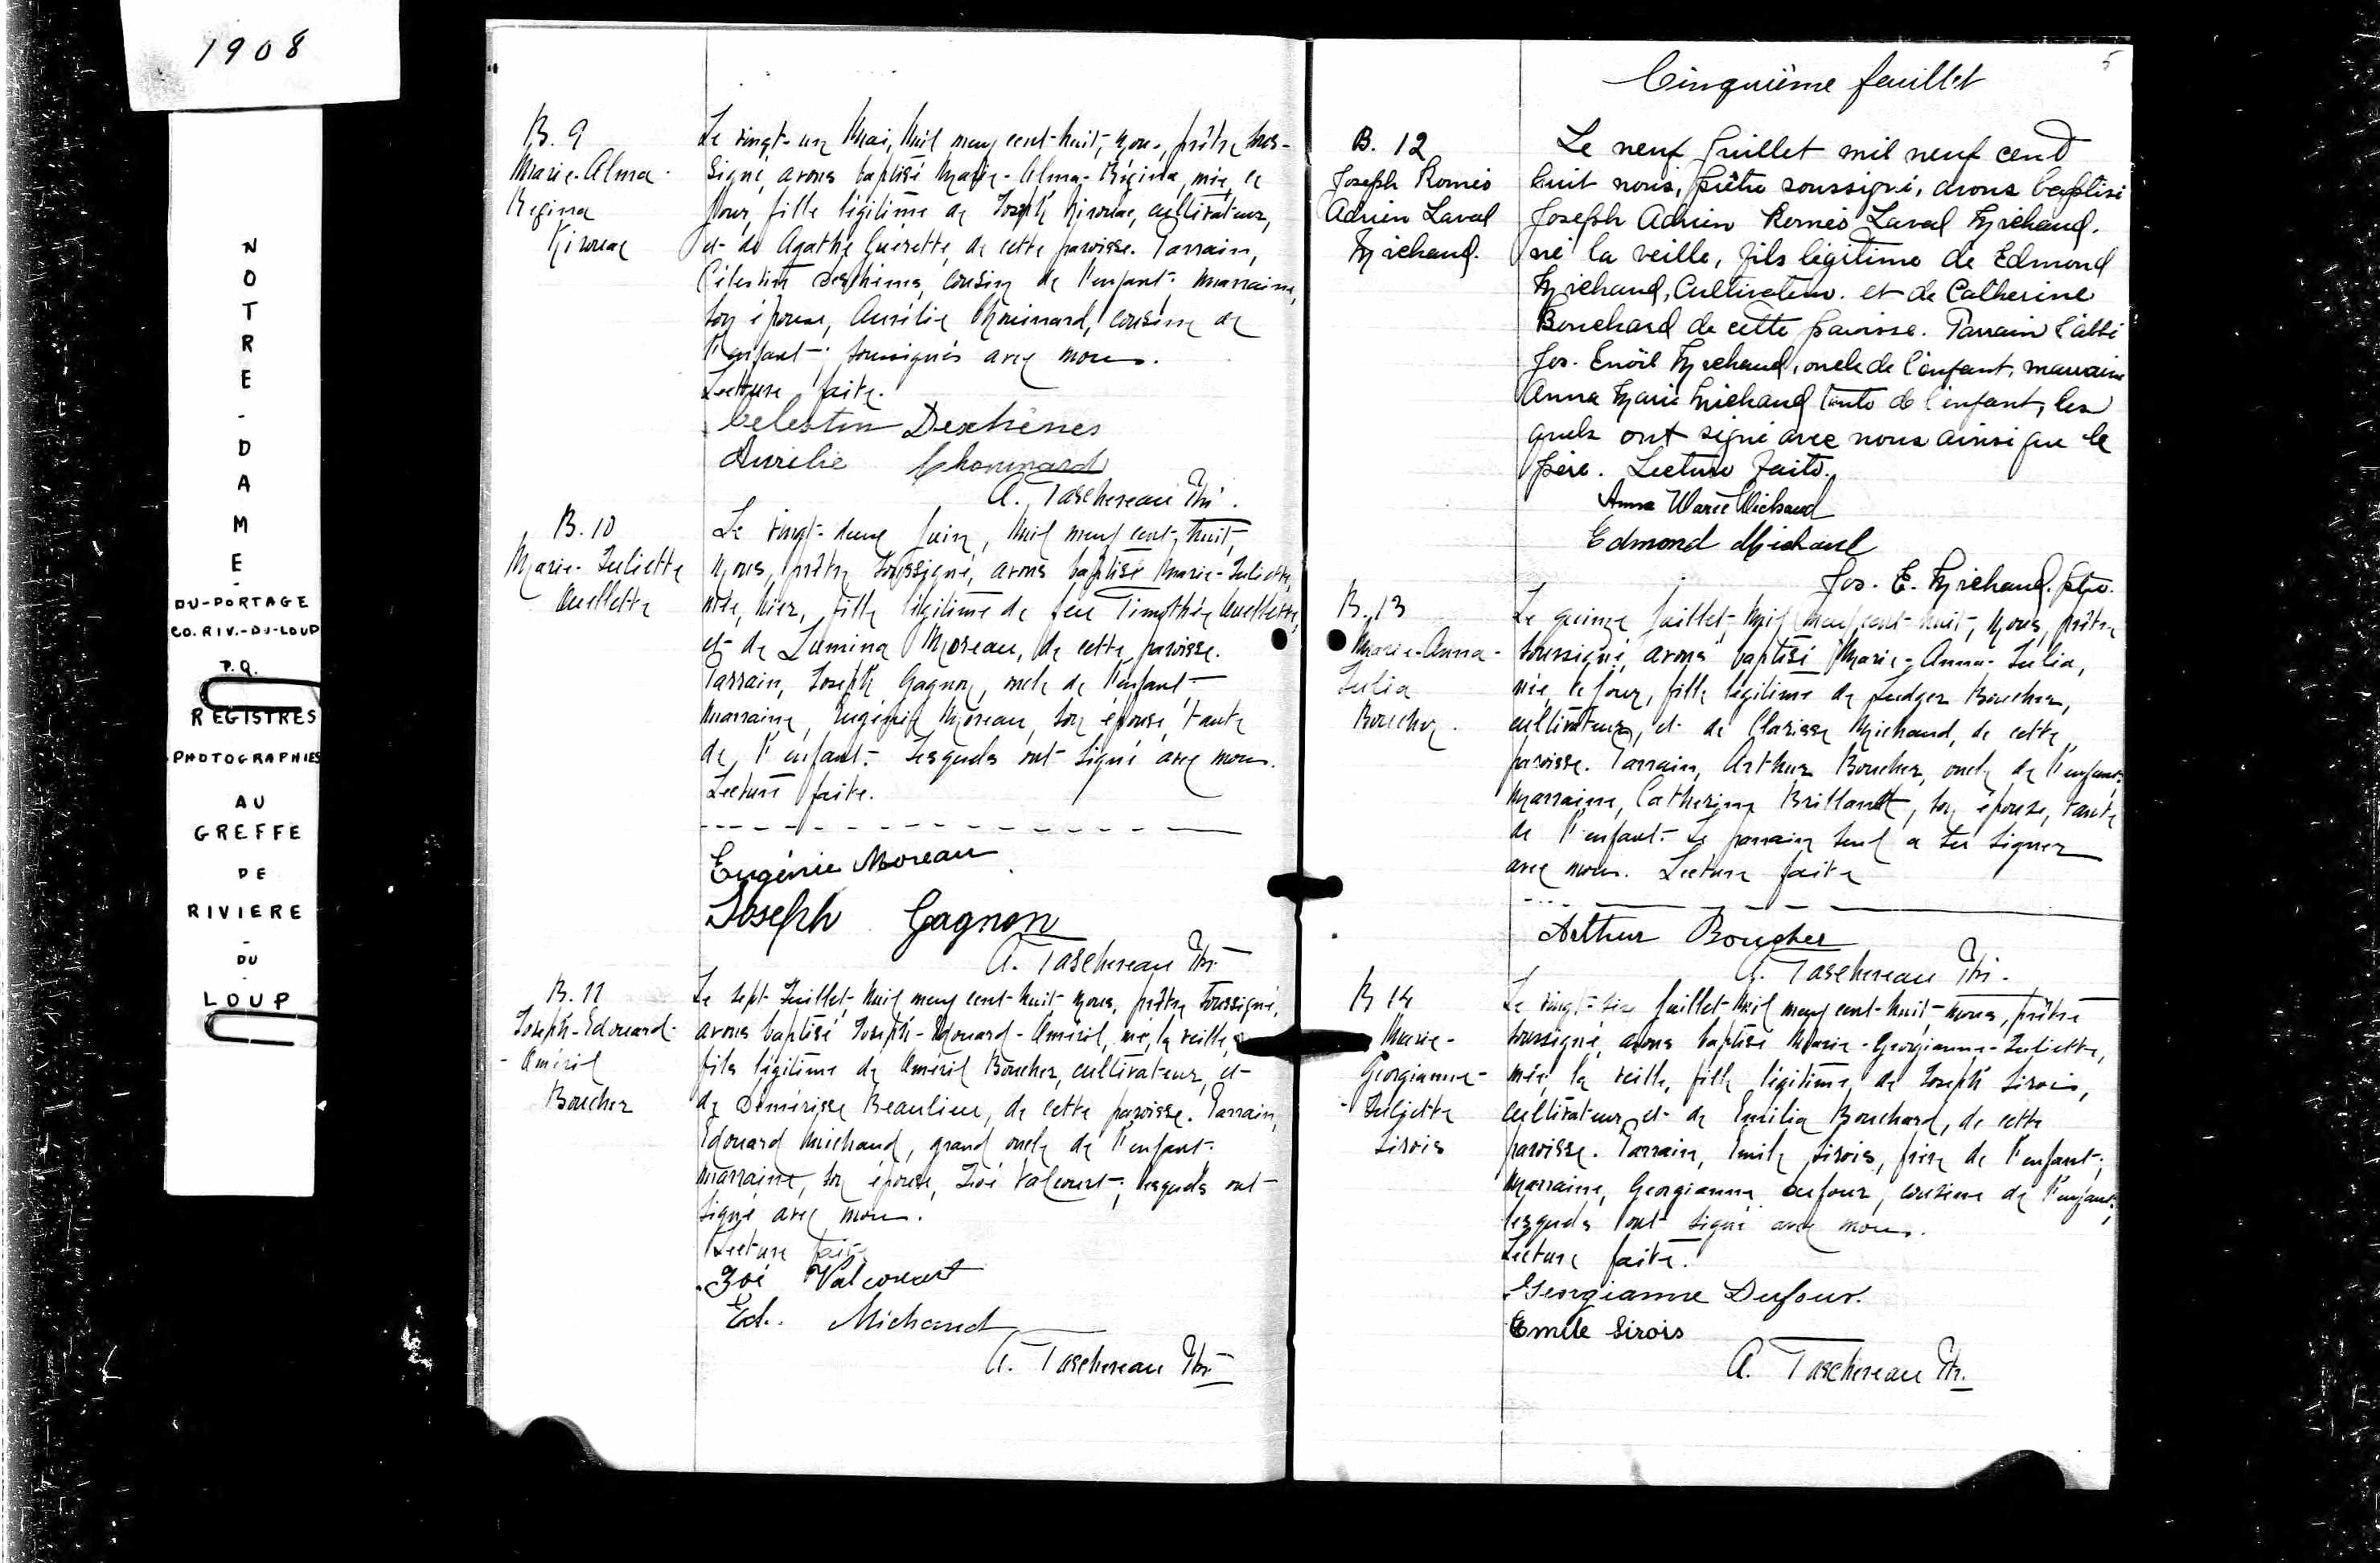 1908
NOTRE-DAME-
DU-PORTAGE
CO. RIV.-DU-LOUP
P.Q.
REGISTRES
PHOTOGRAPHIES
AU
GREFFE
DE
RIVIERE
-
DU
-
LOUP
B. 9
Marie-Alma-
Regina
Kirouac
Le vingt-un Mai, Mil neuf cent-huit, nous, prêtre sous-
signé, avons baptisé Marie-Alma-Régina, née, ce
jour, fille légitime de Joseph Kirouac, cultivateur,
et de Agathe Guérette, de cette paroisse. Parrain,
Célestin Deschênes, cousin de l'enfant: marraine,
son épouse, Aurélie Chouinard, cousine de
l'enfant; soussignés avec nous.
Lecture faite.
Celestin Deschênes
Aurélie Chouinard
A. Taschereau Ptr.
B. 10
Marie-Juliette
Ouellette
Le vingt-deux Juin, Mil neuf cent-huit,
Nous, prêtre soussigné, avons baptisé Marie-Juliette,
née, hier, fille légitime de feu Timothée Ouellette,
et de Lumina Moreau, de cette paroisse.
Parrain, Joseph Gagnon, oncle de l'enfant-
Marraine, Eugénie Moreau, son épouse, tante
de l'enfant. Lesquels ont signé avec nous.
Lecture faite.
Eugénie Moreau
Joseph Gagnon
A. Taschereau Ptr
B. 11
Joseph-Edouard-
-Améril
Boucher
Le sept Juillet, Mil neuf cent-huit, nous, prêtre soussigné,
avons baptisé Joseph-Edouard-Améril, né, la veille,
fils légitime de Améril Boucher, cultivateur, et
de Démérisse Beaulieu, de cette paroisse. Parrain,
Edouard Michaud, grand oncle de l'enfant.
Marraine, son épouse, Zoé Valcourt; lesquels ont
signé avec nous.
Lecture faite
Zoé Valcourt
Ed. Michaud
A. Taschereau Ptr
5
Cinquième feuillet
B. 12
Joseph Roméo
Adrien Laval
Michaud.
Le neuf Juillet mil neuf cent
huit nous, prêtre soussigné, avons baptisé
Joseph Adrien Roméo Laval Michaud.
né la veille, fils légitime de Edmond
Michaud, Cultivateur. et de Catherine
Bouchard de cette paroisse. Parrain l'abbé
Jos. Enoïl Michaud, oncle de l'enfant, marraine
Anna Marie Michaud tante de l'enfant, les
quels ont signé avec nous ainsi que le
père. Lecture faite.
Anna Marie Michaud
Edmond Michaud
Jos. E. Michaud. ptre.
B. 13
Marie-Anna-
Julia
Boucher.
Le quinze Juillet, Mil neuf cent-huit, Nous, prêtre
soussigné, avons baptisé Marie-Anna-Julia,
née, ce jour, fille légitime de Ludger Boucher,
cultivateur, et de Clarisse Michaud, de cette
paroisse. Parrain, Arthur Boucher, oncle de l'enfant;
Marraine, Catherine Brillant, son épouse, tante
de l'enfant. Le parrain seul a su signer
avec nous. Lecture faite
Arthur Boucher
A. Taschereau Ptr.
B 14
Marie-
Georgianna-
-Juliette
Sirois
Le vingt-six Juillet Mil neuf cent-huit-nous, prêtre
soussigné, avons baptisé Marie-Georgianna-Juliette,
née, la veille, fille légitime de Joseph Sirois,
cultivateur, et de Emilia Bouchard, de cette
paroisse. Parrain, Emile Sirois, frère de l'enfant;
Marraine, Georgianna Dufour, cousine de l'enfant;
lesquels ont signé avec nous.
Lecture faite.
Georgianne Dufour.
Emile Sirois
A. Taschereau Ptr.